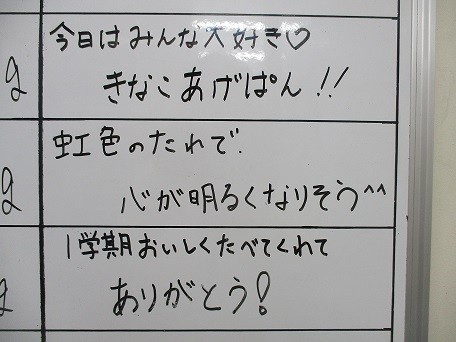 今日はみんな大好き♡
g
きなこあげぱん!!
虹色のたれで
g
心が明るくなりそう^^
1学期おいしくたべてくれて
g
ありがとう!